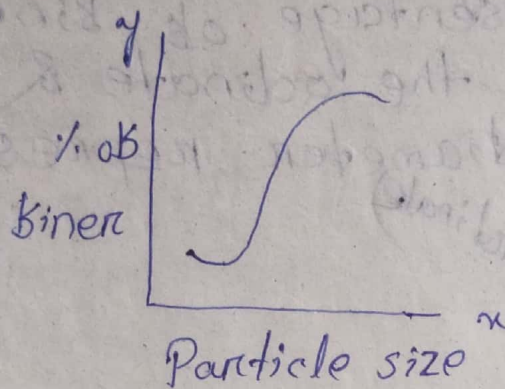 y
% of
finer
x
Particle size